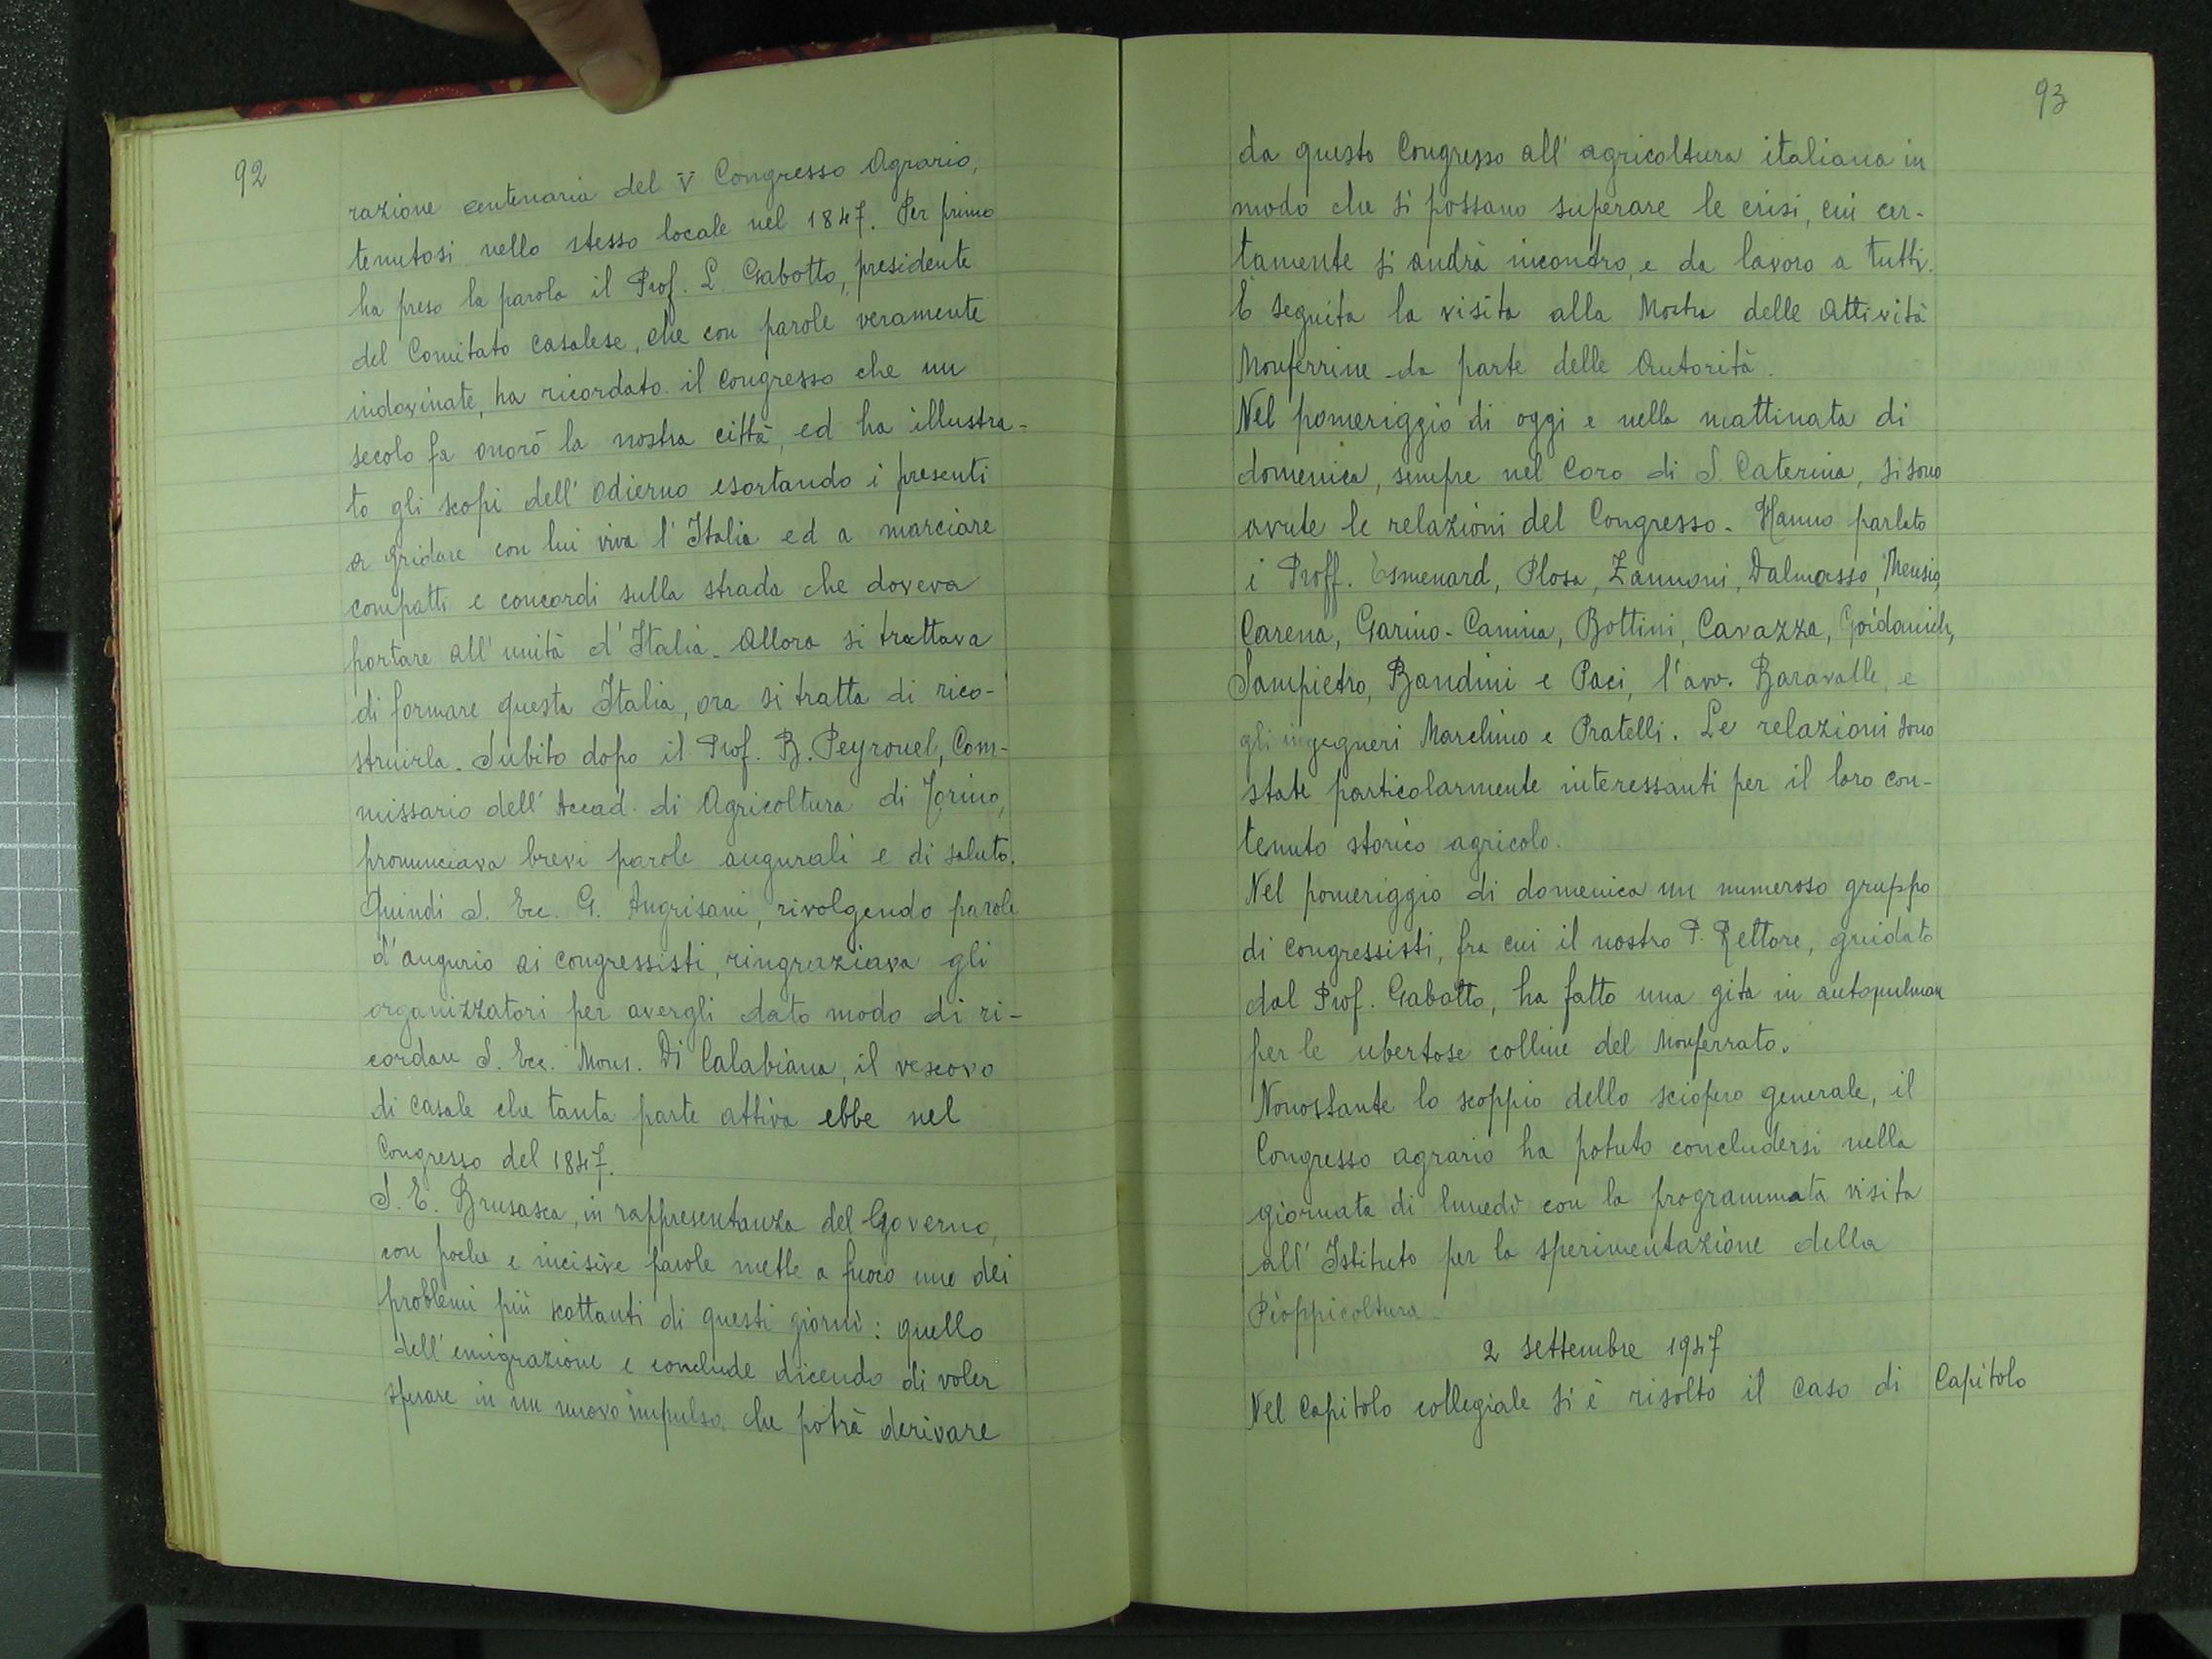 92
razione centenaria del V Congresso Agrario,
tenutosi nello stesso locale nel 1847. Per primo
ha preso la parola il Prof. L. Gabotto, presidente
del Comitato casalese, che con parole veramente
indovinate, ha ricordato il congresso che un
secolo fa onorò la nostra città, ed ha illustra-
to gli scopi dell'odierno esortando i presenti
a gridare con lui viva l'Italia ed a marciare
compatti e concordi sulla strada che doveva
portare all'unità d'Italia. Allora si trattava
di formare questa Italia, ora si tratta di rico-
struirla. Subito dopo il Prof. B. Peyronel, Com-
missario dell'Accad. di Agricoltura di Torino,
pronunciava brevi parole augurali e di saluto.
Quindi S. Ecc. G. Angrisani, rivolgendo parole
d'augurio ai congressisti, ringraziava gli
organizzatori per avergli dato modo di ri-
cordare S. Ecc. Mons. Di Calabiana, il vescovo
di Casale che tanta parte attiva ebbe nel
Congresso del 1847.
S. E. Brusasca, in rappresentanza del Governo,
con poche e incisive parole mette a fuoco uno dei
problemi più scottanti di questi giorni: quello
dell'emigrazione e conclude dicendo di voler
sperare in un nuovo impulso che potrà derivare
93
da questo Congresso all'agricoltura italiana in
modo che si possano superare le crisi, cui cer-
tamente si andrà incontro, e da lavoro a tutti.
È seguita la visita alla Mostra delle Attività
Monferrine da parte delle Autorità.
Nel pomeriggio di oggi e nella mattinata di
domenica, sempre nel Coro di S. Caterina, si sono
avute le relazioni del Congresso. Hanno parlato
i Proff. Esmenard, Plosa, Zannoni, Dalmasso,
Carena, Garino-Canina, Bottini, Cavazza, Goidanich,
Sampietro, Bandini e Paci, l'avv. Baravalle, e
gli ingegneri Marchino e Pratelli. Le relazioni sono
state particolarmente interessanti per il loro con-
tenuto storico agricolo.
Nel pomeriggio di domenica un numeroso gruppo
di congressisti, fra cui il nostro P. Rettore, guidato
dal Prof. Gabotto, ha fatto una gita in autopulman
per le ubertose colline del Monferrato.
Nonostante lo scoppio dello sciopero generale, il
Congresso agrario ha potuto concludersi nella
giornata di lunedì con la programmata visita
all'Istituto per la sperimentazione della
Pioppicoltura.
2 settembre 1947
Nel Capitolo collegiale si è risolto il caso di
Capitolo